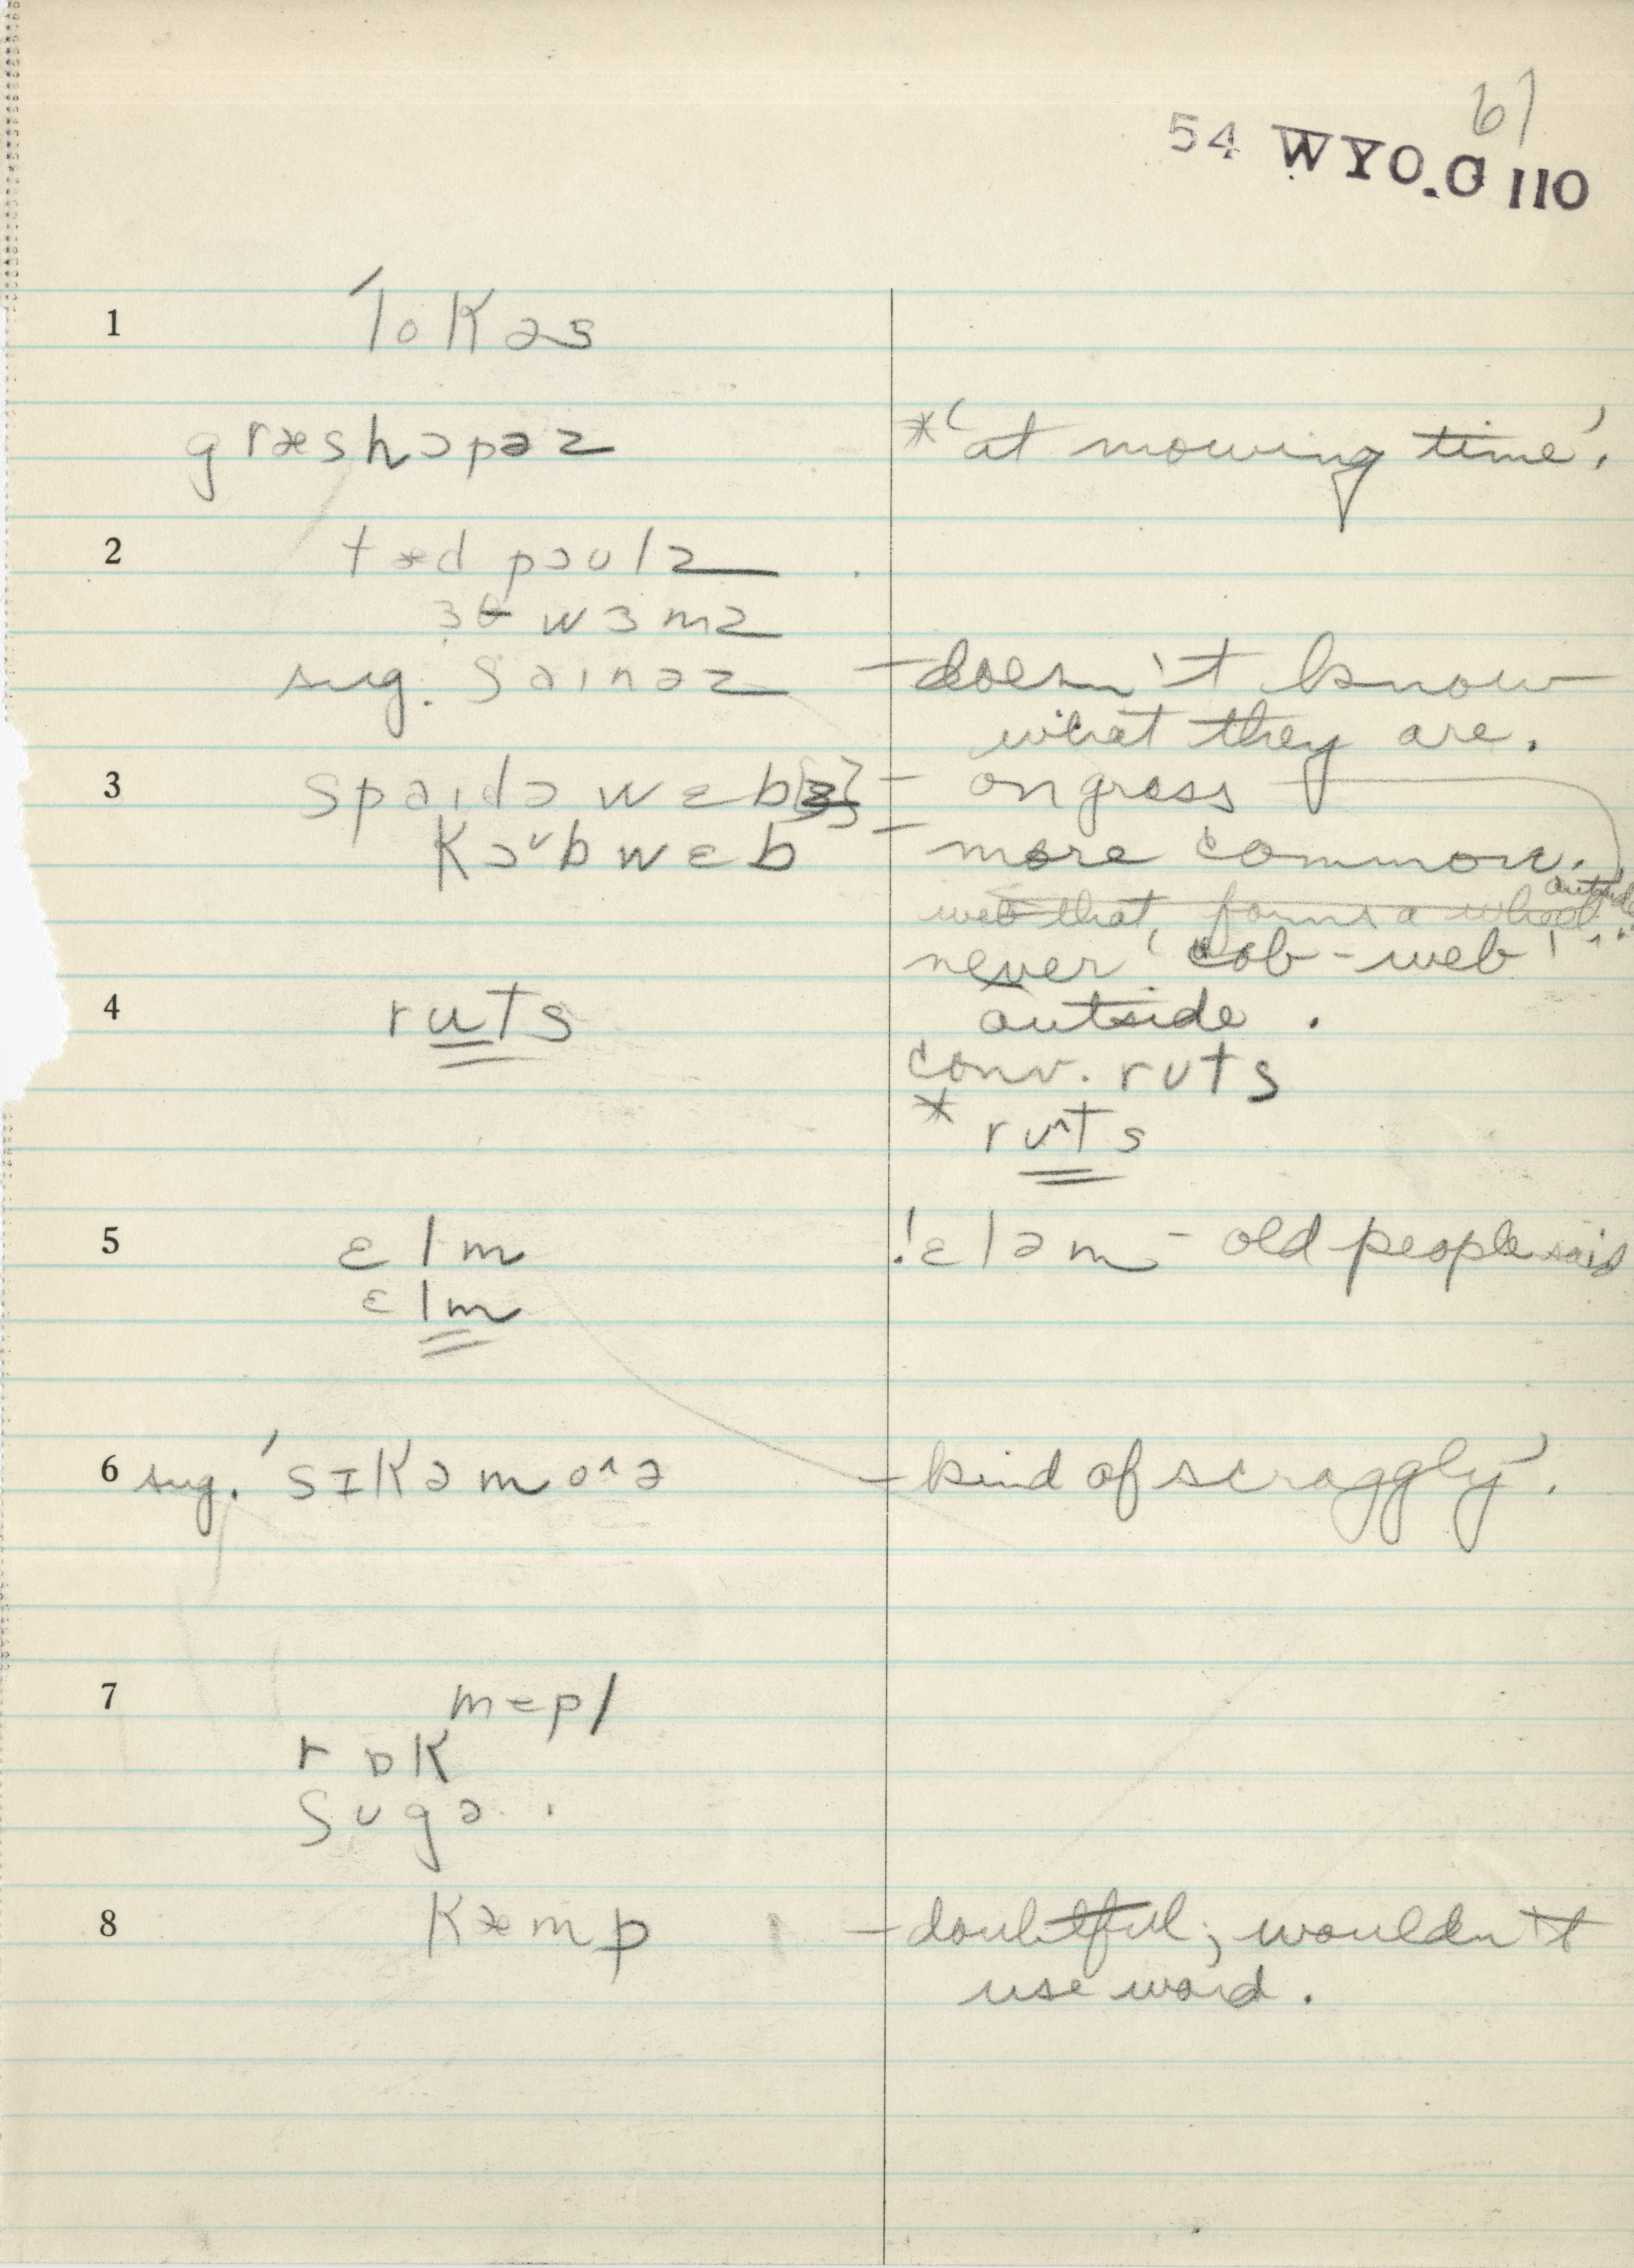 61
54 WYO.O 110
1 ˈlokəs
græshɔpəz *'at mowing time'.
2 tædpoʊlz
3θwɜmz
sug. saɪnəz – doesn't know
what they are.
3 spaɪdə wɛb[z] – on grass
Kɔ˅bwɛb – more common.
web that forms a wheel outside
never 'cob-web'
4 ruts outside.
conv. rʊts
* rʊ^ts
5 ɛlm !ɛləm – old people said
ɛlm
6 sug. ˈsɪkəmo^ə – kind of scraggly'.
7 mepl
rɒk
sʊgə.
8 kæmp – doubtful; wouldn't
use word.